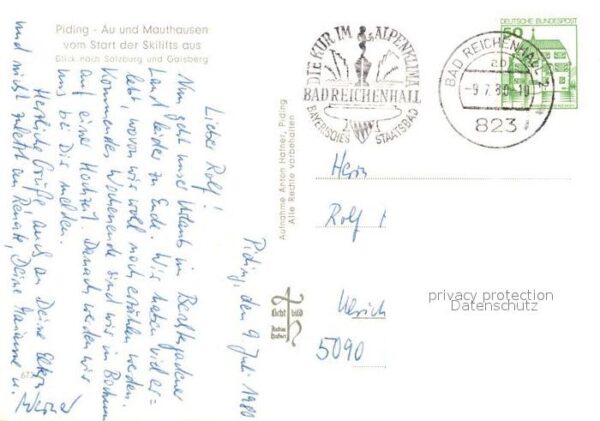 Piding - Au und Mauthausen
vom Start der Skilifts aus
Blick nach Salzburg und Gaisberg
Piding, den 9. Juli 1980
Liebe Rolf!
Nun geht unser Urlaub im Berchtesgadener
Land leider zu Ende. Wir haben viel er=
lebt, wovon wir wohl noch erzählen werden.
Kommendes Wochenende sind wir in Bochum
auf einer Hochzeit. Danach werden wir
uns bei Dir melden.
Herzliche Grüße, auch an Deine Eltern
und nicht zuletzt an Renate, Deine Marianne u.
Werner
Aufnahme Anton Hafner, Piding
Alle Rechte vorbehalten
Licht bild
Anton
Hafner
DIE KUR IM ALPENKLIMA
BAD REICHENHALL
BAYERISCHES STAATSBAD
BAD REICHENHALL 2
ab
-9.7.80-10
823
DEUTSCHE BUNDESPOST
50
Herrn
Rolf
Ulrich
5090
privacy protection
Datenschutz